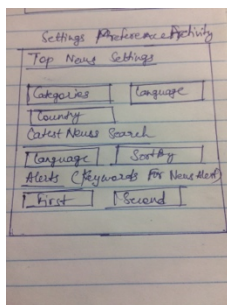 Settings Preference Activity
Top News Settings
Categories Language
Country
Latest News Search
Language SortBy
Alerts (Keywords For News Alert)
First Second